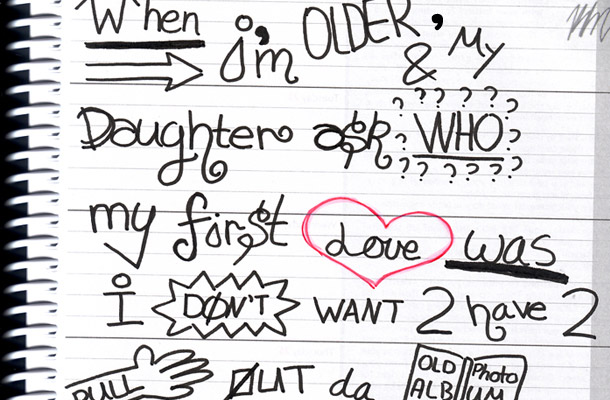 When i'm OLDER, & My
Daughter ask ? ? ? ? ? ? WHO ? ? ? ? ? ? ?
my first Love was
i DON'T WANT 2 have 2
PULL OUT da OLD Photo ALBUM